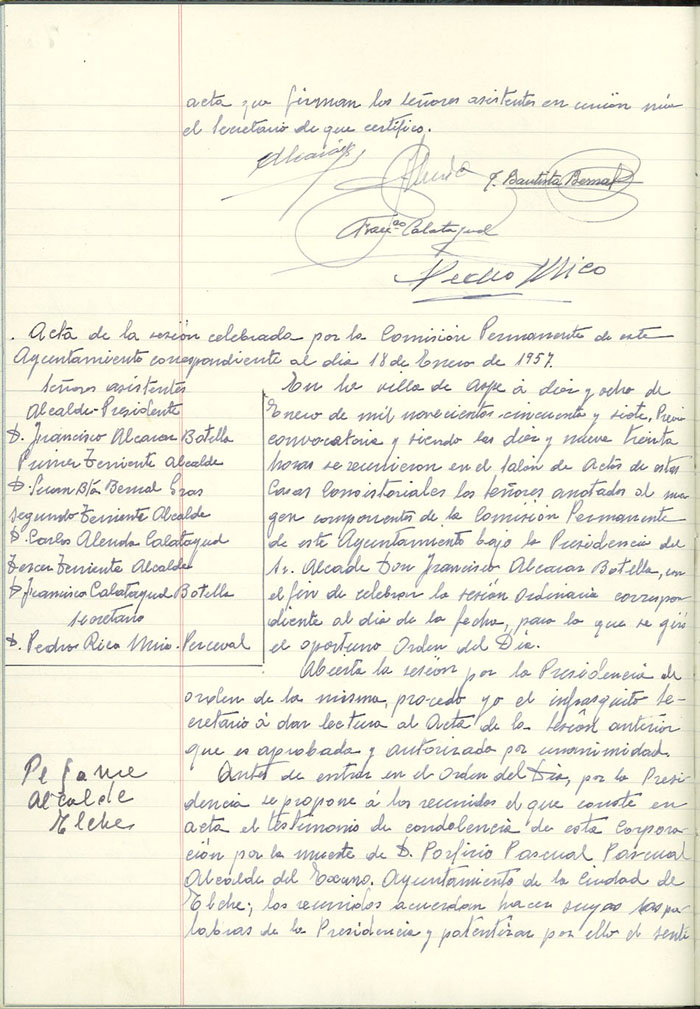 acta que firman los señores asistentes en unión mia
el Secretario de que certifico.
Alcaraz
Alenda
J. Bautista Bernal
Franco Calatayud
Pedro Mico
Acta de la sesión celebrada por la Comisión Permanente de este
Ayuntamiento correspondiente al dia 18 de Enero de 1957.
Señores asistentes
Alcalde-Presidente
D. Francisco Alcaraz Botella
Primer Teniente Alcalde
D. Juan Bta Bernal Gras
Segundo Teniente Alcalde
D. Carlos Alenda Calatayud
Tercer Teniente Alcalde
D. Francisco Calatayud Botella
Secretario
D. Pedro Rico Perceval
En la villa de Aspe á diez y ocho de
Enero de mil novecientos cincuenta y siete, Previa
convocatoria y siendo las diez y nueve treinta
horas se reunieron en el Salón de Actos de estas
Casas Consistoriales los señores anotados al mar
gen componentes de la Comisión Permanente
de este Ayuntamiento bajo la Presidencia del
Sr. Alcalde Don Francisco Alcaraz Botella, con
el fin de celebrar la sesión ordinaria correspon
diente al dia de la fecha, para la que se giró
el oportuno Orden del Dia.
Abierta la sesión por la Presidencia de
orden de la misma, procedo yo el infrasquito Se-
cretario á dar lectura al Acta de la sesión anterior
que es aprobada y autorizada por unanimidad.
Pesame
Alcalde
Elche
Antes de entrar en el Orden del Dia, por la Presi
dencia se propone á los reunidos el que conste en
acta el testimonio de condolencia de esta Corpora-
ción por la muerte de D. Porfirio Pascual Pascual
Alcalde del Excmo. Ayuntamiento de la Ciudad de
Elche; los reunidos acuerdan hacer suyas las pa
labras de la Presidencia y patentizar por ello el senti